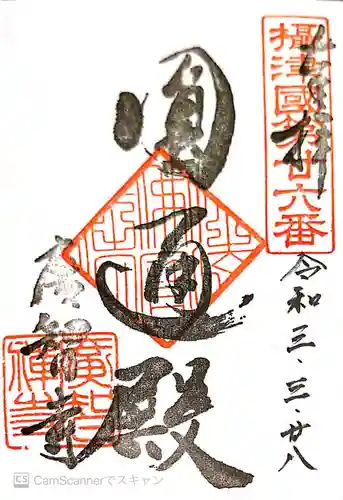 奉拝
攝津國第廿六番
令和三・三・廿八
圓通殿
廣智寺
廣智禅寺
CS CamScannerでスキャン